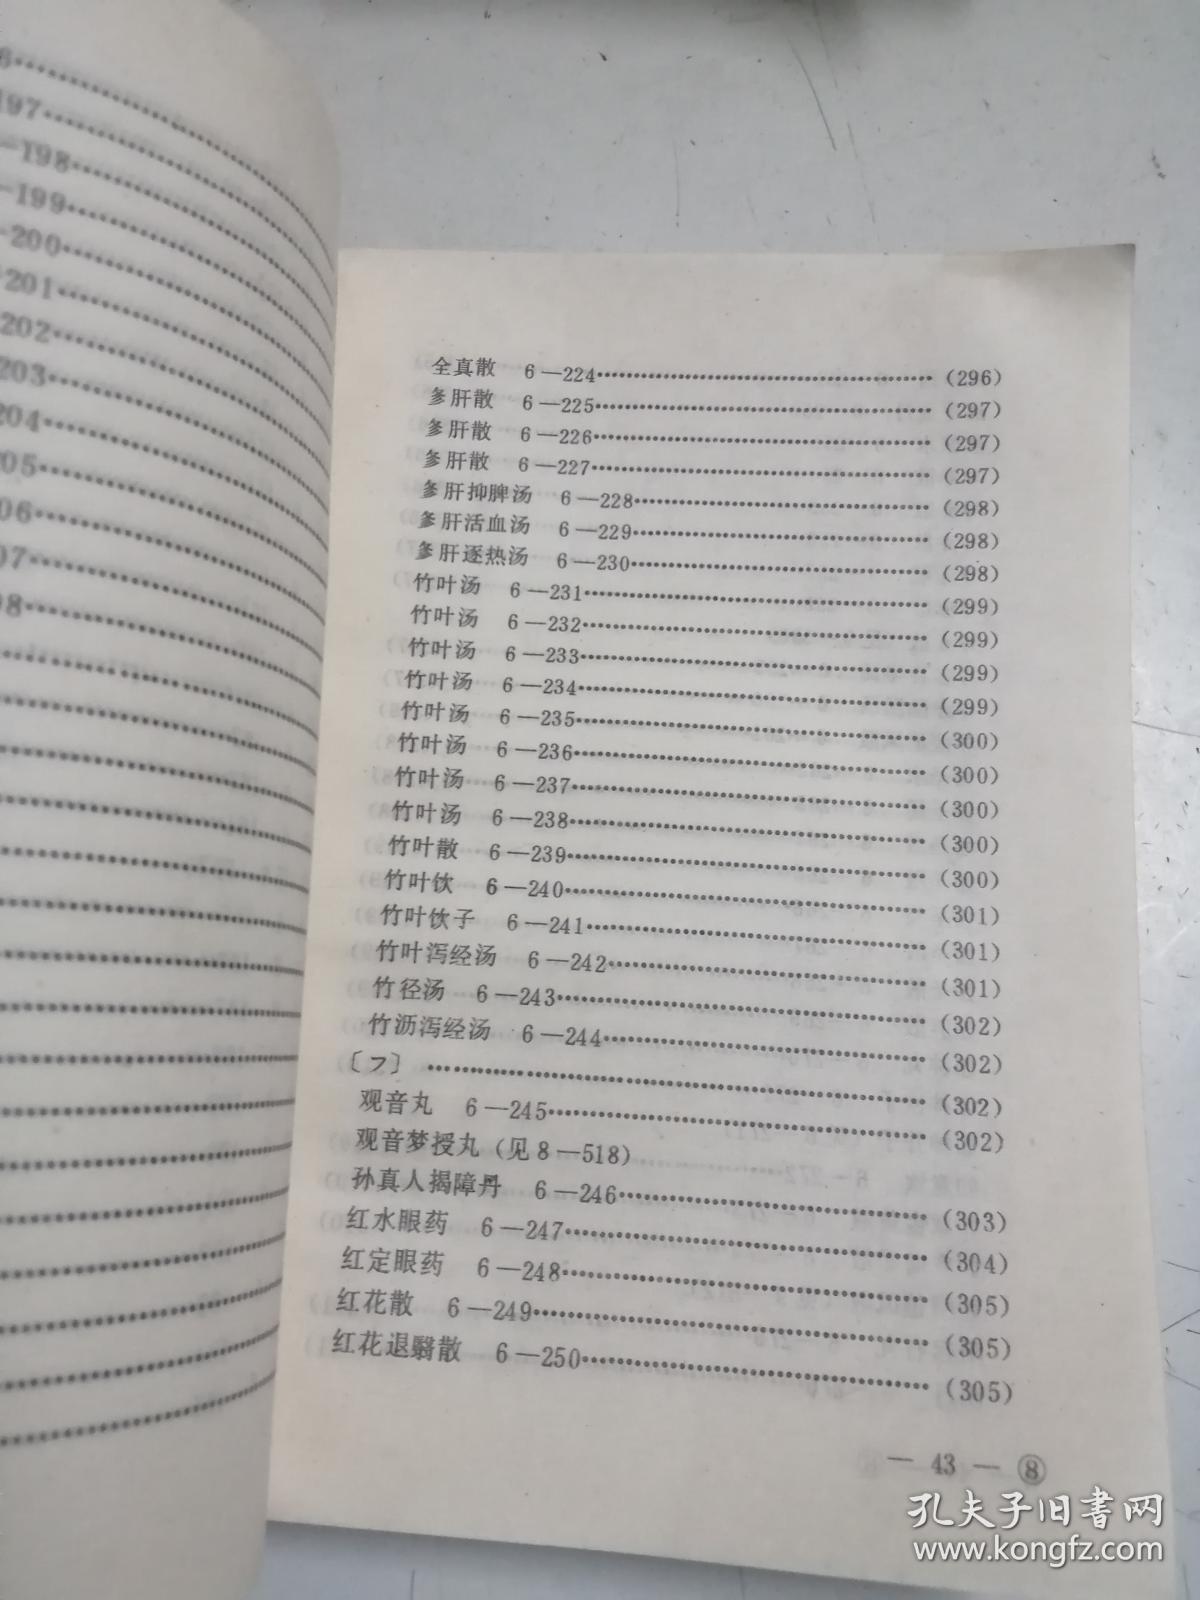 197
—198
—199
200
201
202
203
204
05
06
07
08
全真散 6—224……(296)
肝散 6—225……(297)
肝散 6—226……(297)
肝散 6—227……(297)
肝抑脾汤 6—228……(298)
肝活血汤 6—229……(298)
肝逐热汤 6—230……(298)
竹叶汤 6—231……(299)
竹叶汤 6—232……(299)
竹叶汤 6—233……(299)
竹叶汤 6—234……(299)
竹叶汤 6—235……(300)
竹叶汤 6—236……(300)
竹叶汤 6—237……(300)
竹叶汤 6—238……(300)
竹叶散 6—239……(300)
竹叶饮 6—240……(301)
竹叶饮子 6—241……(301)
竹叶泻经汤 6—242……(301)
竹径汤 6—243……(302)
竹沥泻经汤 6—244……(302)
〔フ〕……(302)
观音丸 6—245……(302)
观音梦授丸(见8—518)
孙真人揭障丹 6—246……(303)
红水眼药 6—247……(304)
红定眼药 6—248……(305)
红花散 6—249……(305)
红花退翳散 6—250……(305)
— 43 — ⑧
孔夫子旧书网
www.kongfz.com